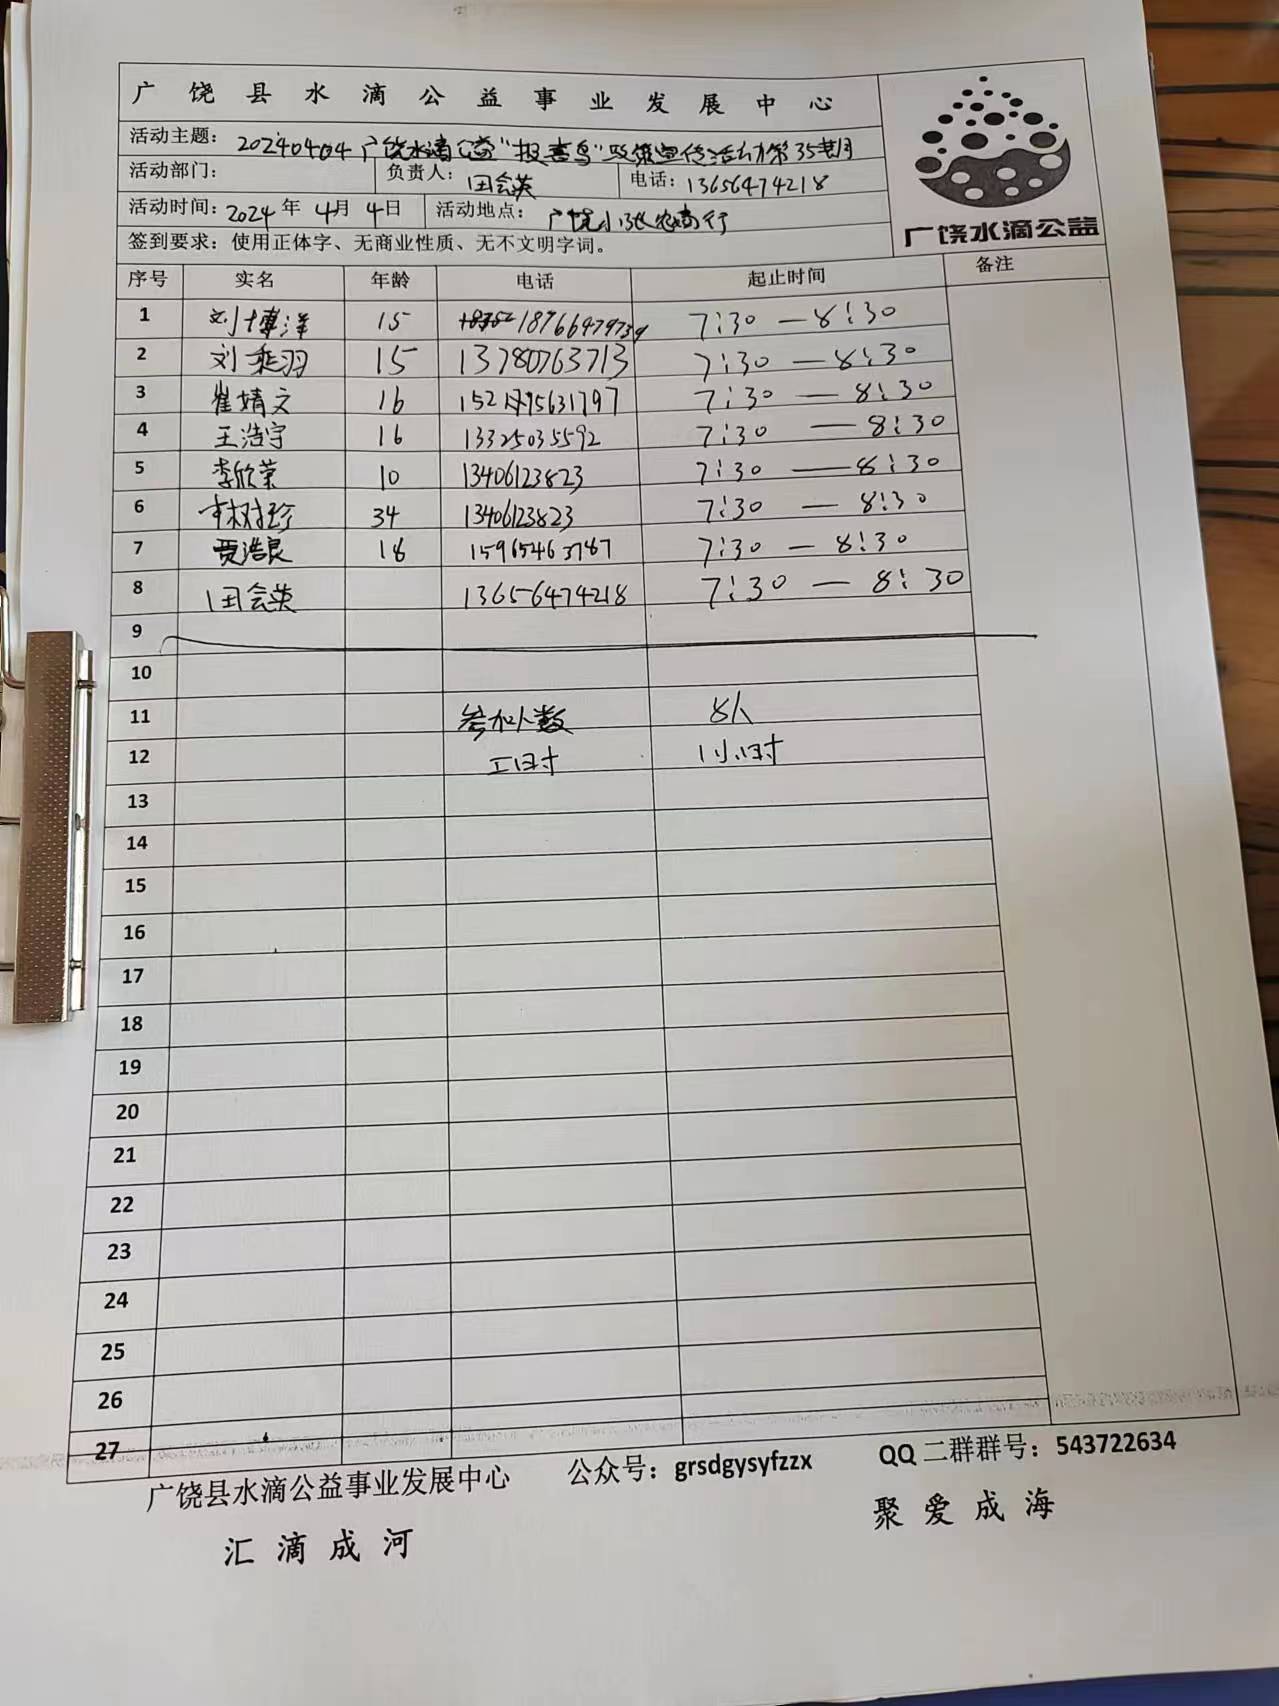 广饶县水滴公益事业发展中心
活动主题：20240404广饶水滴公益“报喜鸟”政策宣传活动第35期
活动部门： 负责人：田会英 电话：13656474218
活动时间：2024年4月4日 活动地点：广饶小张农商行
签到要求：使用正体字、无商业性质、无不文明字词。
广饶水滴公益
序号 实名 年龄 电话 起止时间 备注
1 刘博洋 15 18766479739 7:30—8:30
2 刘乘羽 15 13780763713 7:30—8:30
3 崔婧文 16 7:30—8:30
4 王浩宇 16 13325035592 7:30—8:30
5 李欣荣 10 13406123823 7:30—8:30
6 34 13406123823 7:30—8:30
7 贾浩良 18 15965463787 7:30—8:30
8 田会英 13656474218 7:30—8:30
9
10
11 参加人数 8人
12 工时 1小时
13
14
15
16
17
18
19
20
21
22
23
24
25
26
27
广饶县水滴公益事业发展中心 公众号：grsdgysyfzzx QQ二群群号：543722634
汇滴成河 聚爱成海